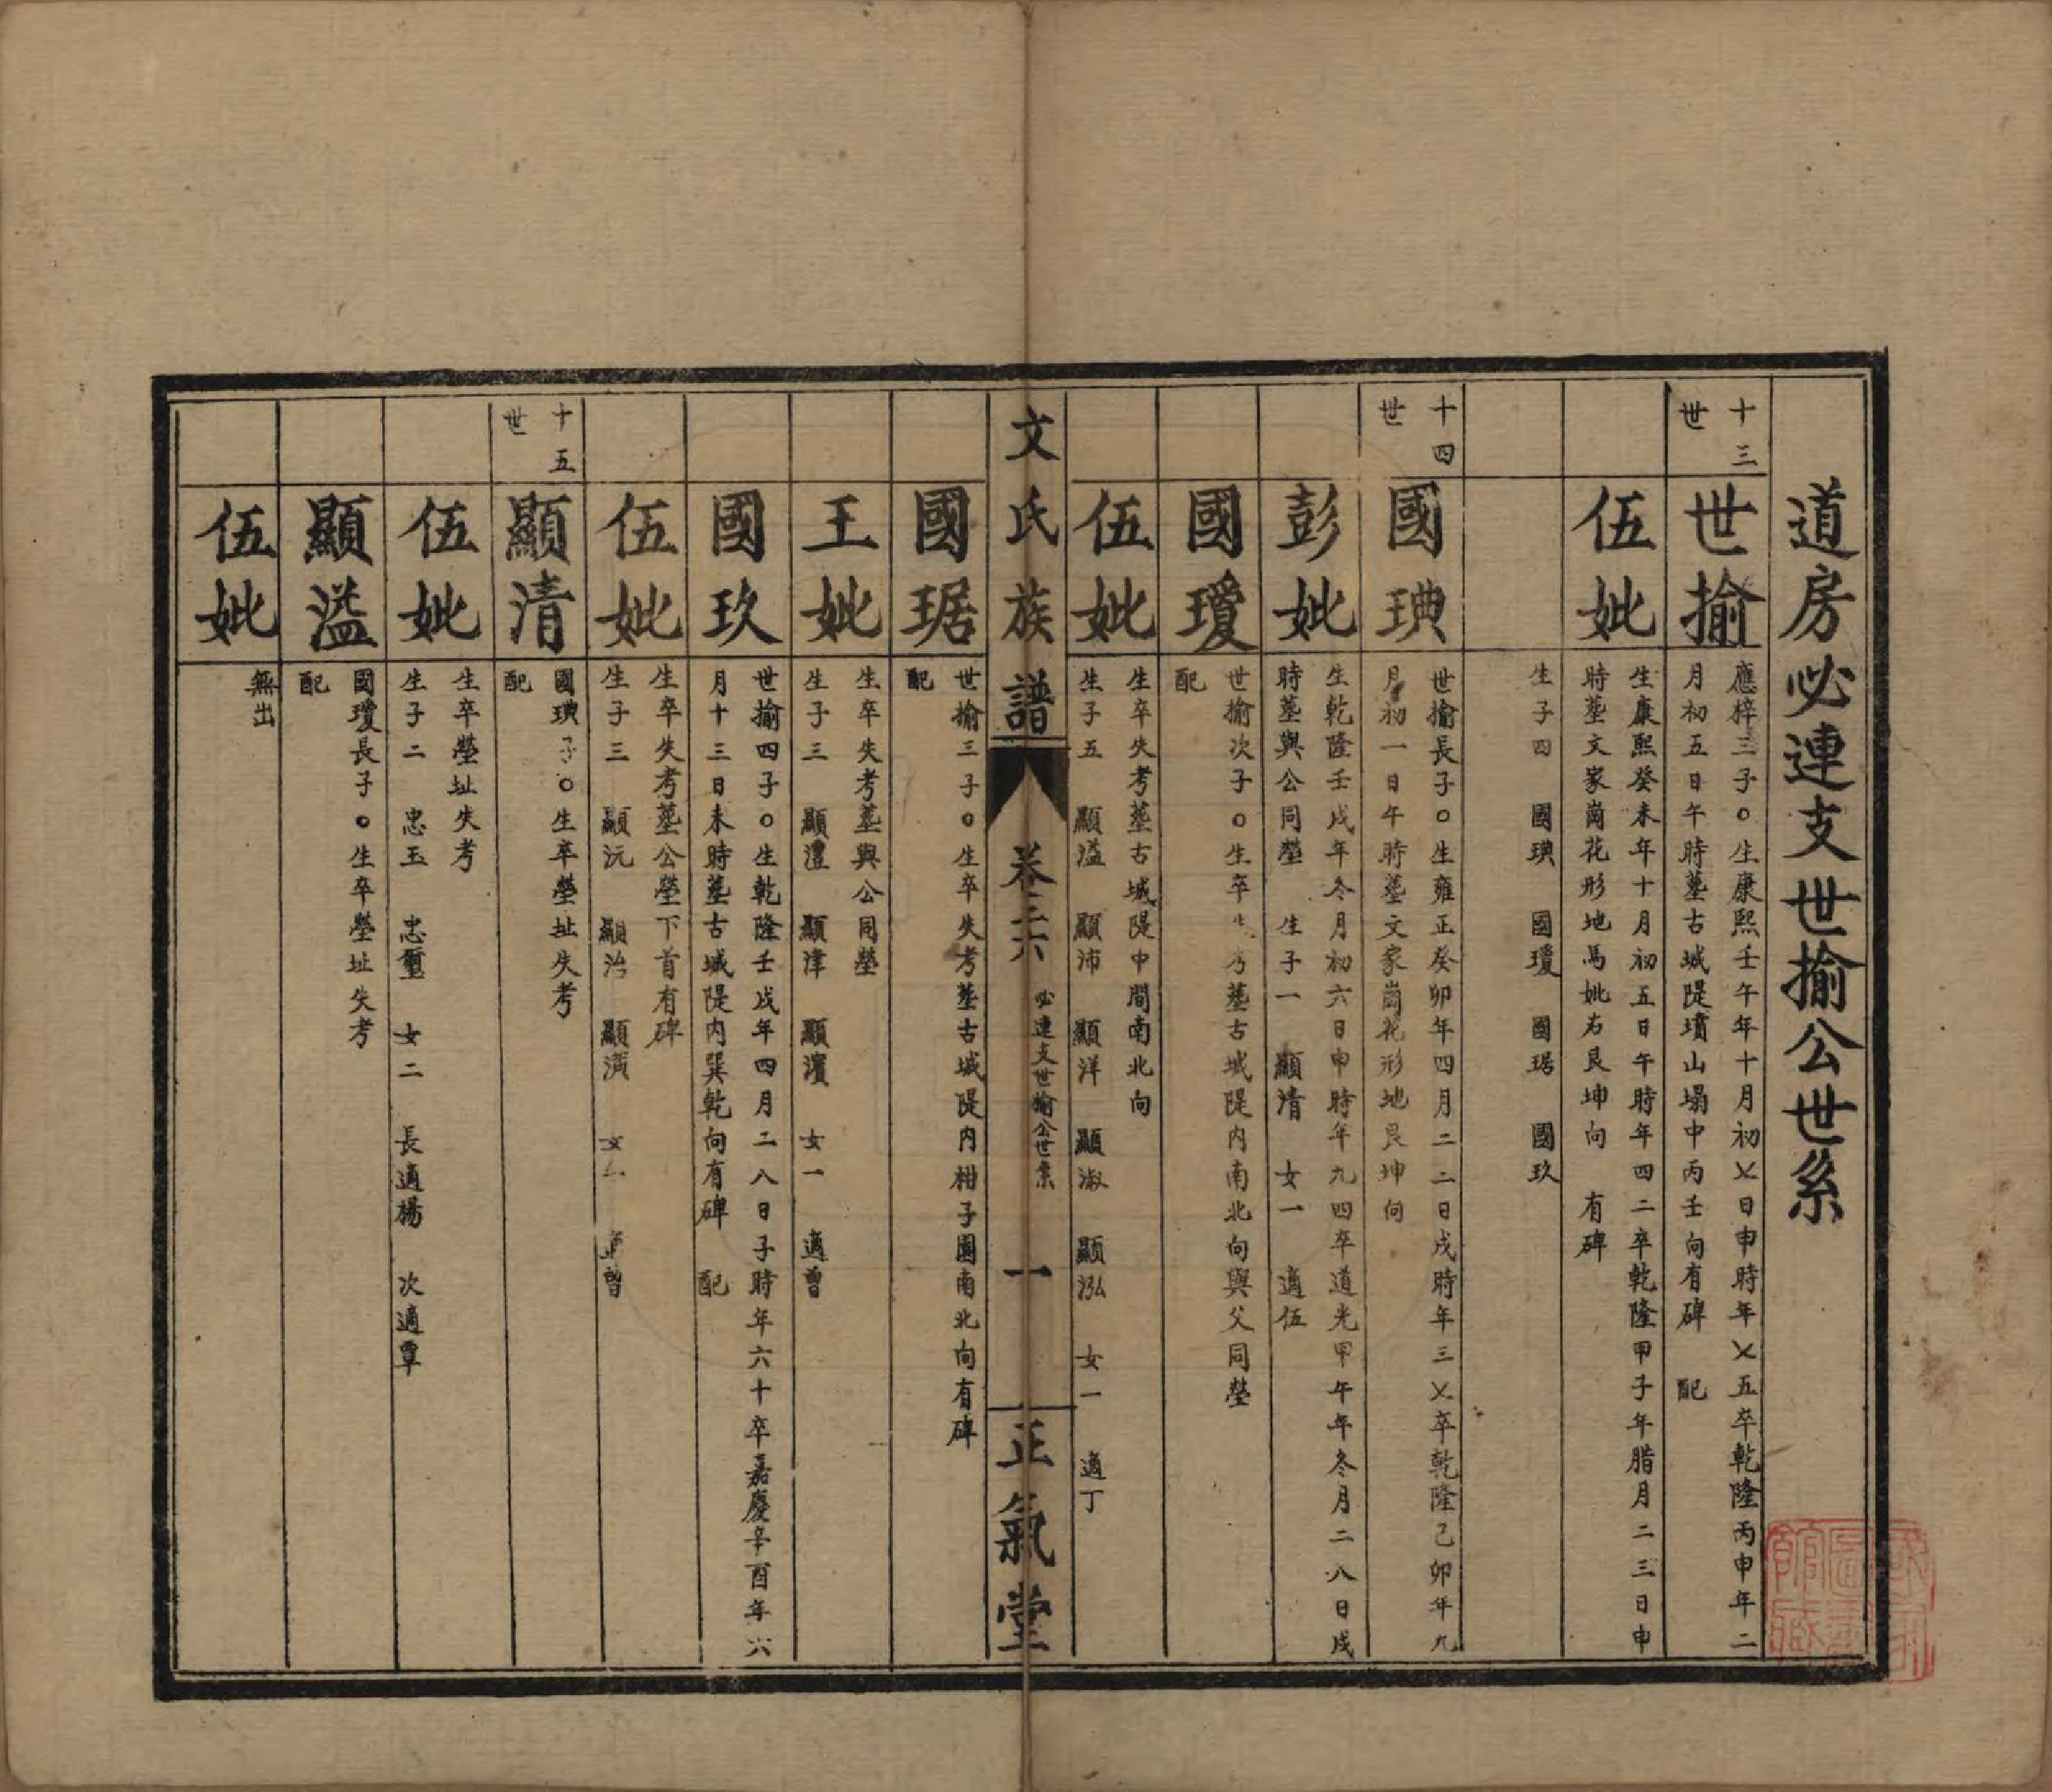 道房必連支世揄公世系
十三世
世揄
應梓三子○生康熙壬午年十月初乂日申時年乂五卒乾隆丙申年二
月初五日午時墓古城隄墳山塌中丙壬向有碑　配
伍妣
生康熙癸未年十月初五日午時年四二卒乾隆甲子年腊月二三日申
時墓文家崗花形地馬妣右艮坤向　有碑
生子四　國琠　國瓊　國琚　國玖
十四世
國琠
世揄長子○生雍正癸卯年四月二二日戌時年三乂卒乾隆己卯年九
月初一日午時墓文家崗花形地艮坤向
彭妣
生乾隆壬戌年冬月初六日申時年九四卒道光甲午年冬月二八日戌
時墓與公同塋　生子一　顯清　女一　適伍
國瓊
世揄次子○生卒考墓古城隄内南北向與父同塋
配
伍妣
生卒失考墓古城隄中間南北向
生子五　顯溢　顯沛　顯洋　顯淑　顯泓　女一　適丁
文氏族譜
卷二六
必連支世揄公世系
一
正氣堂
國琚
世揄三子○生卒失考墓古城隄内柑子園南北向有碑
配
王妣
生卒失考墓與公同塋
生子三　顯澧　顯津　顯濱　女一　適曾
國玖
世揄四子○生乾隆壬戌年四月二八日子時年六十卒嘉慶辛酉年六
月十三日未時墓古城隄内巽乾向有碑　配
伍妣
生卒失考墓公塋下首有碑
生子三　顯沅　顯治　顯滿　女　適曾
十五世
顯清
國琠子○生卒塋址失考
配
伍妣
生卒塋址失考
生子二　忠玉　忠璽　女二　長適楊　次適覃
顯溢
國瓊長子○生卒塋址失考
配
伍妣
無出